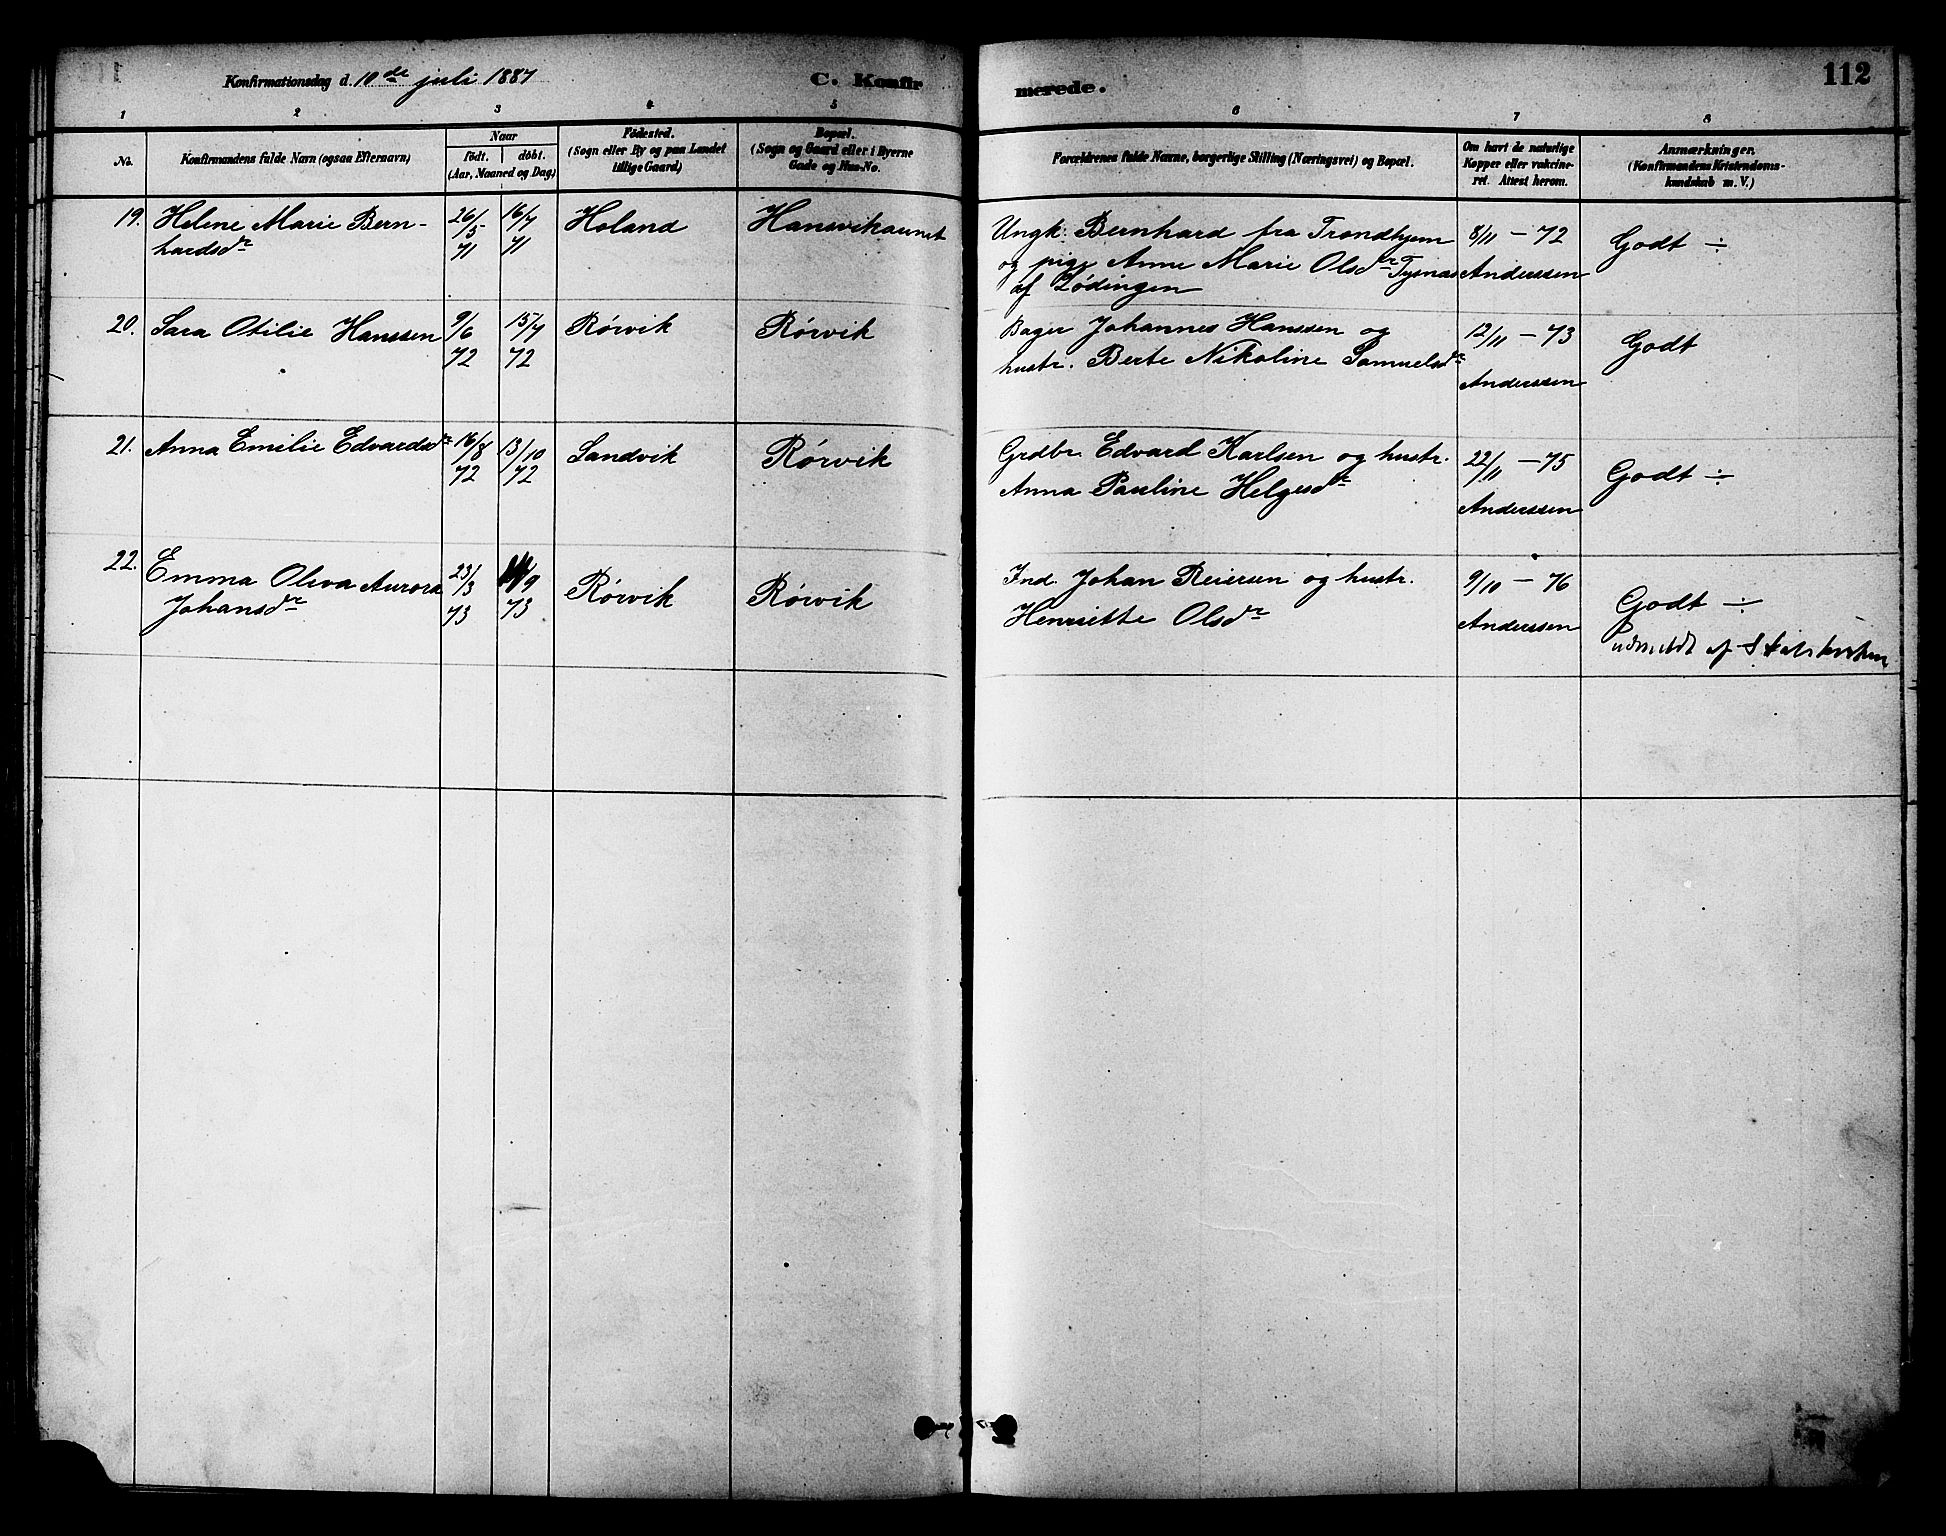 Konfirmationsdag d. 10de juli 1887
C. Konfir
merede.
112
1 2 3 4 5 6 7 8
No.
Konfirmandens fulde Navn (ogsaa Efternavn)
Naar
født. døbt.
(Aar, Maaned og Dag)
Fødested.
(Sogn eller By og paa Landet
tillige Gaard)
Bopæl.
(Sogn og Gaard eller i Byerne
Gade og Hus-No.
Forældrenes fulde Navne, borgerlige Stilling (Næringsvei) og Bopæl.
Om havt de naturlige
Kopper eller vakcine-
ret. Attest herom.
Anmærkninger.
(Konfirmandens Kristendoms-
kundskab m. V.)
19. Helene Marie Bern- 26/5 16/7 Holand Hansvikaunet Ungk. Bernhard fra Trondhjem 8/11 - 72 Godt ÷
hardsdr 71 71 og pige Anne Marie Olsdr Tysnas Anderssen
af Lødingen
20. Sara Otilie Hanssen 9/6 15/7 Rørvik Rørvik Bager Johannes Hanssen og 12/11 - 73 Godt
72 72 hustr. Berte Nikoline Samuelsdr Anderssen
21. Anna Emilie Edvardsdr 16/8 13/10 Sandvik Rørvik Grdbr. Edvard Karlsen og hustr. 22/11 - 75 Godt ÷
72 72 Anna Pauline Helgesdr Anderssen
22. Emma Oliva Aurora 23/3 /9 Rørvik Rørvik Ind. Johan Reiersen og hustr. 9/10 - 76 Godt ÷
Johansdr 73 73 Henriette Olsdr Anderssen
udmeldt af Statskirken